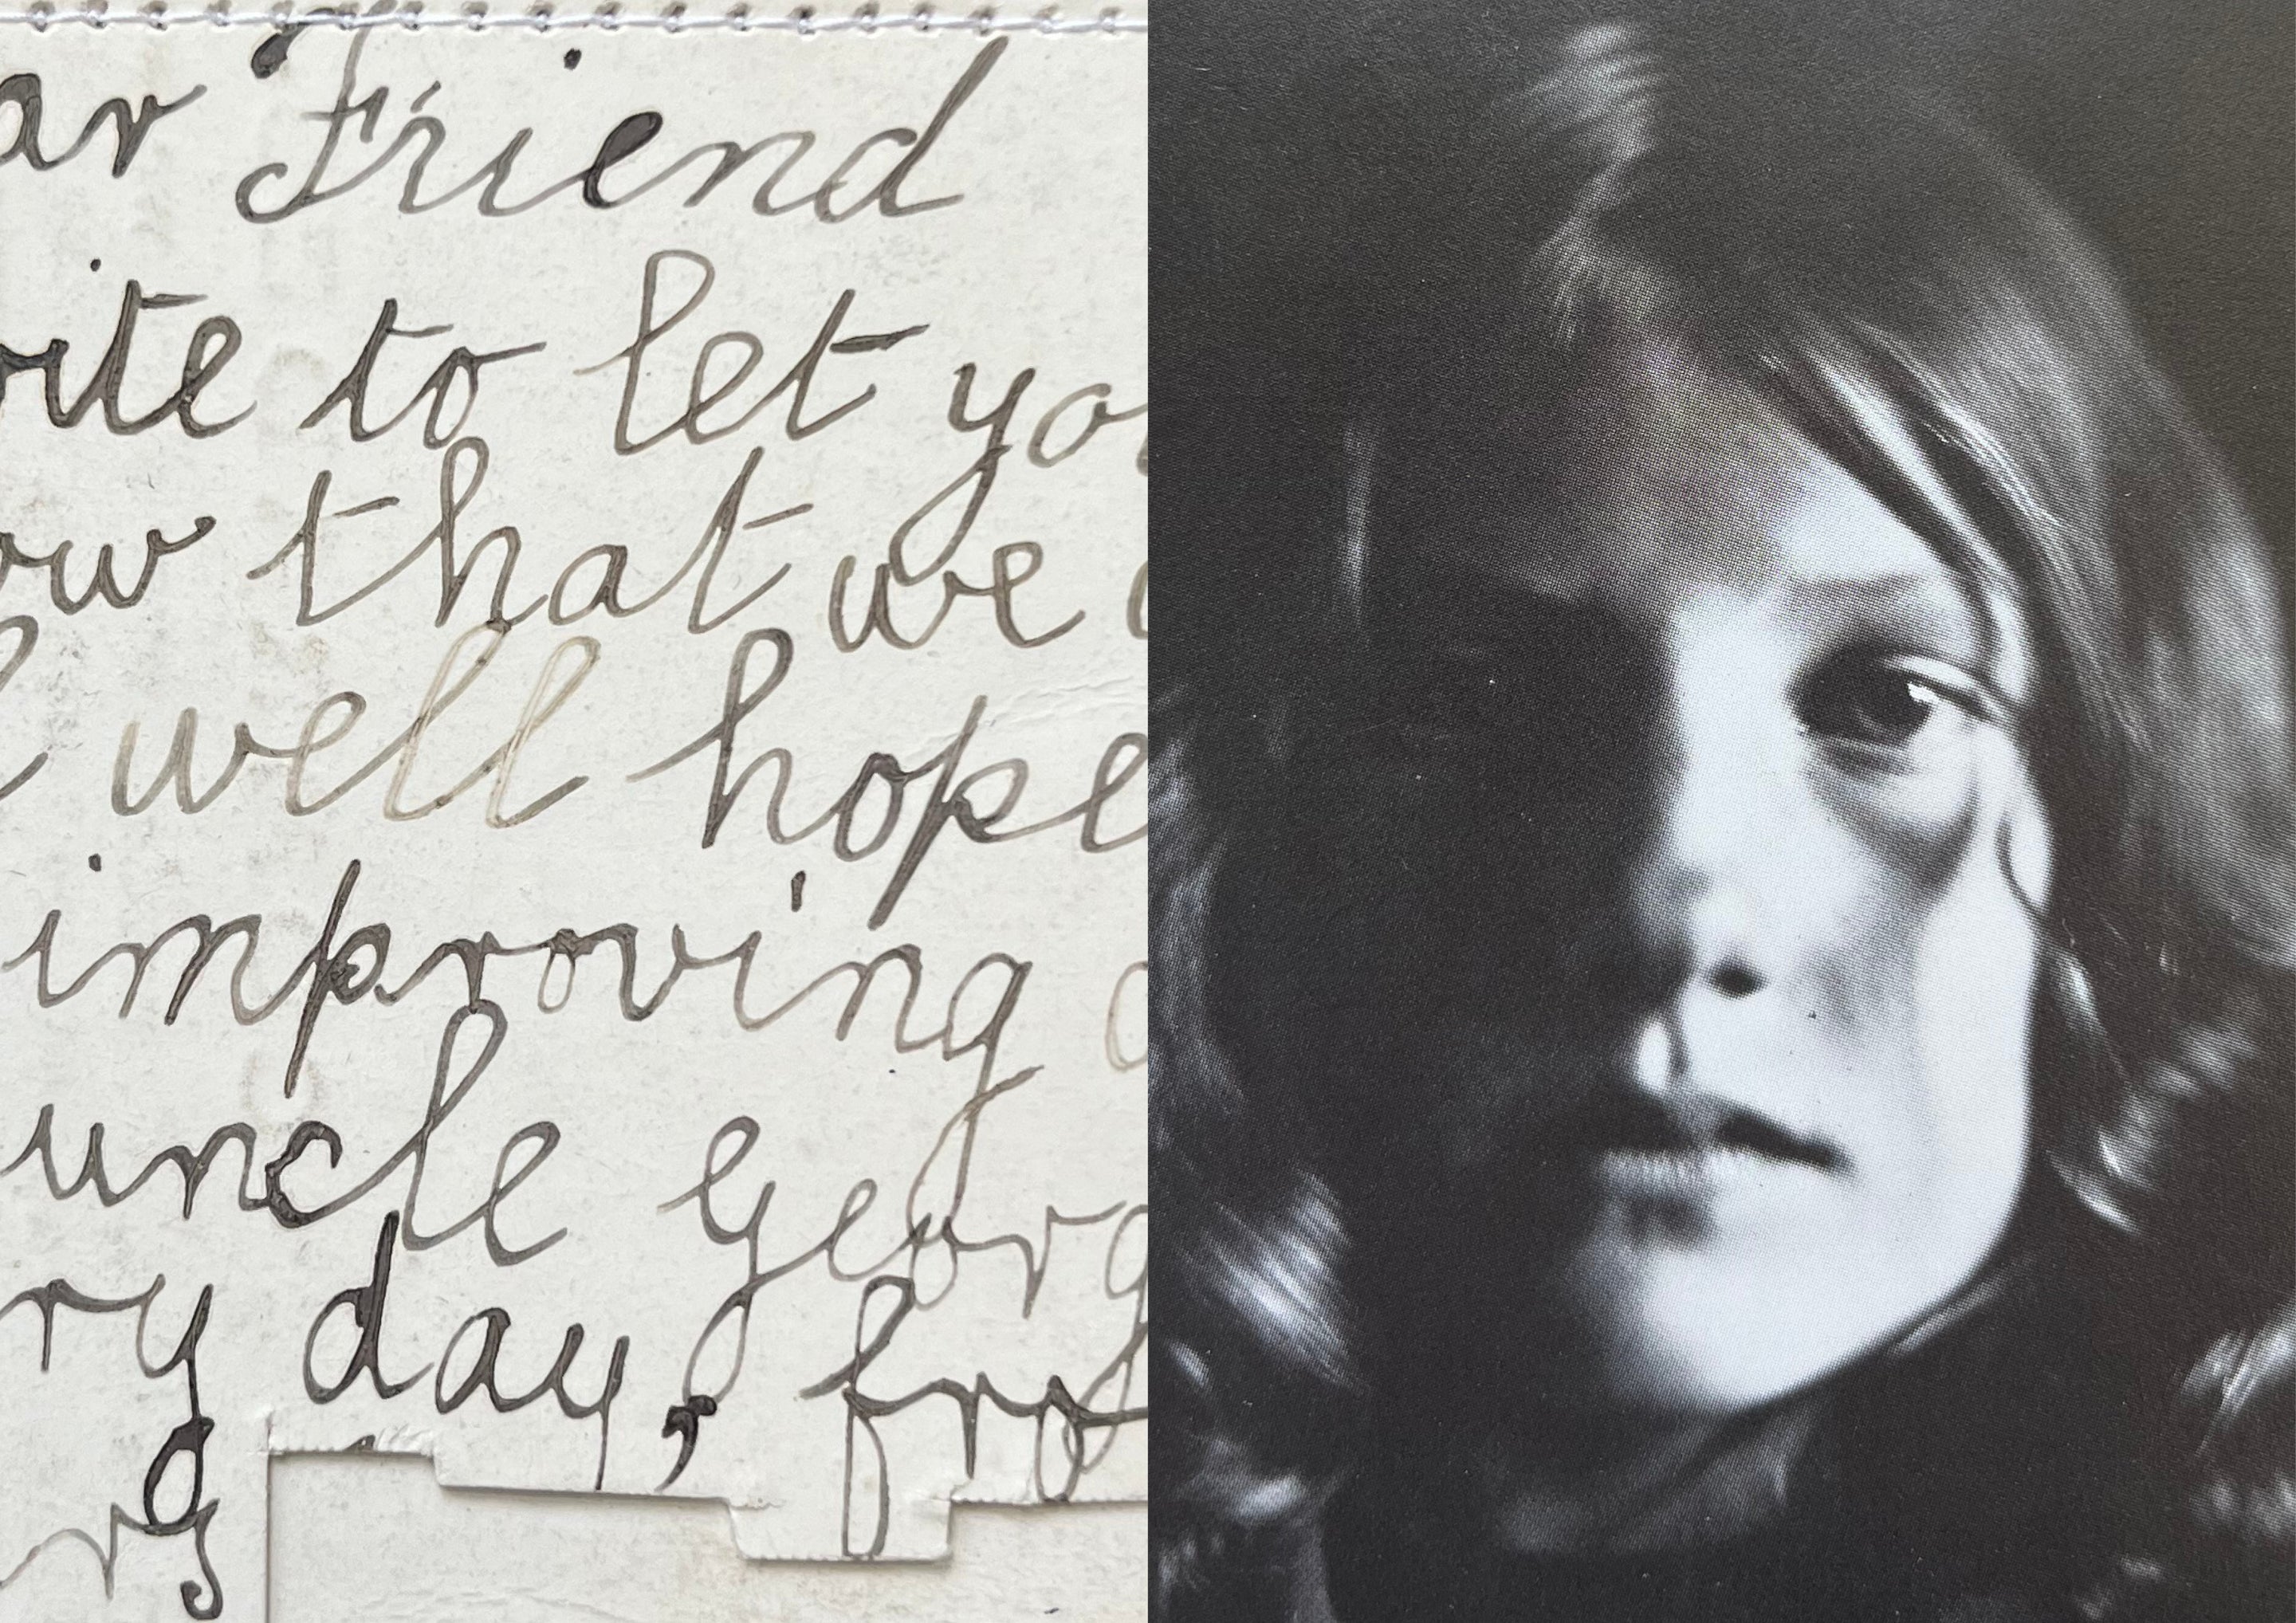 ar Friend
rite to let yo
ow that we
l well hope
improving
uncle georg
ry day, fro